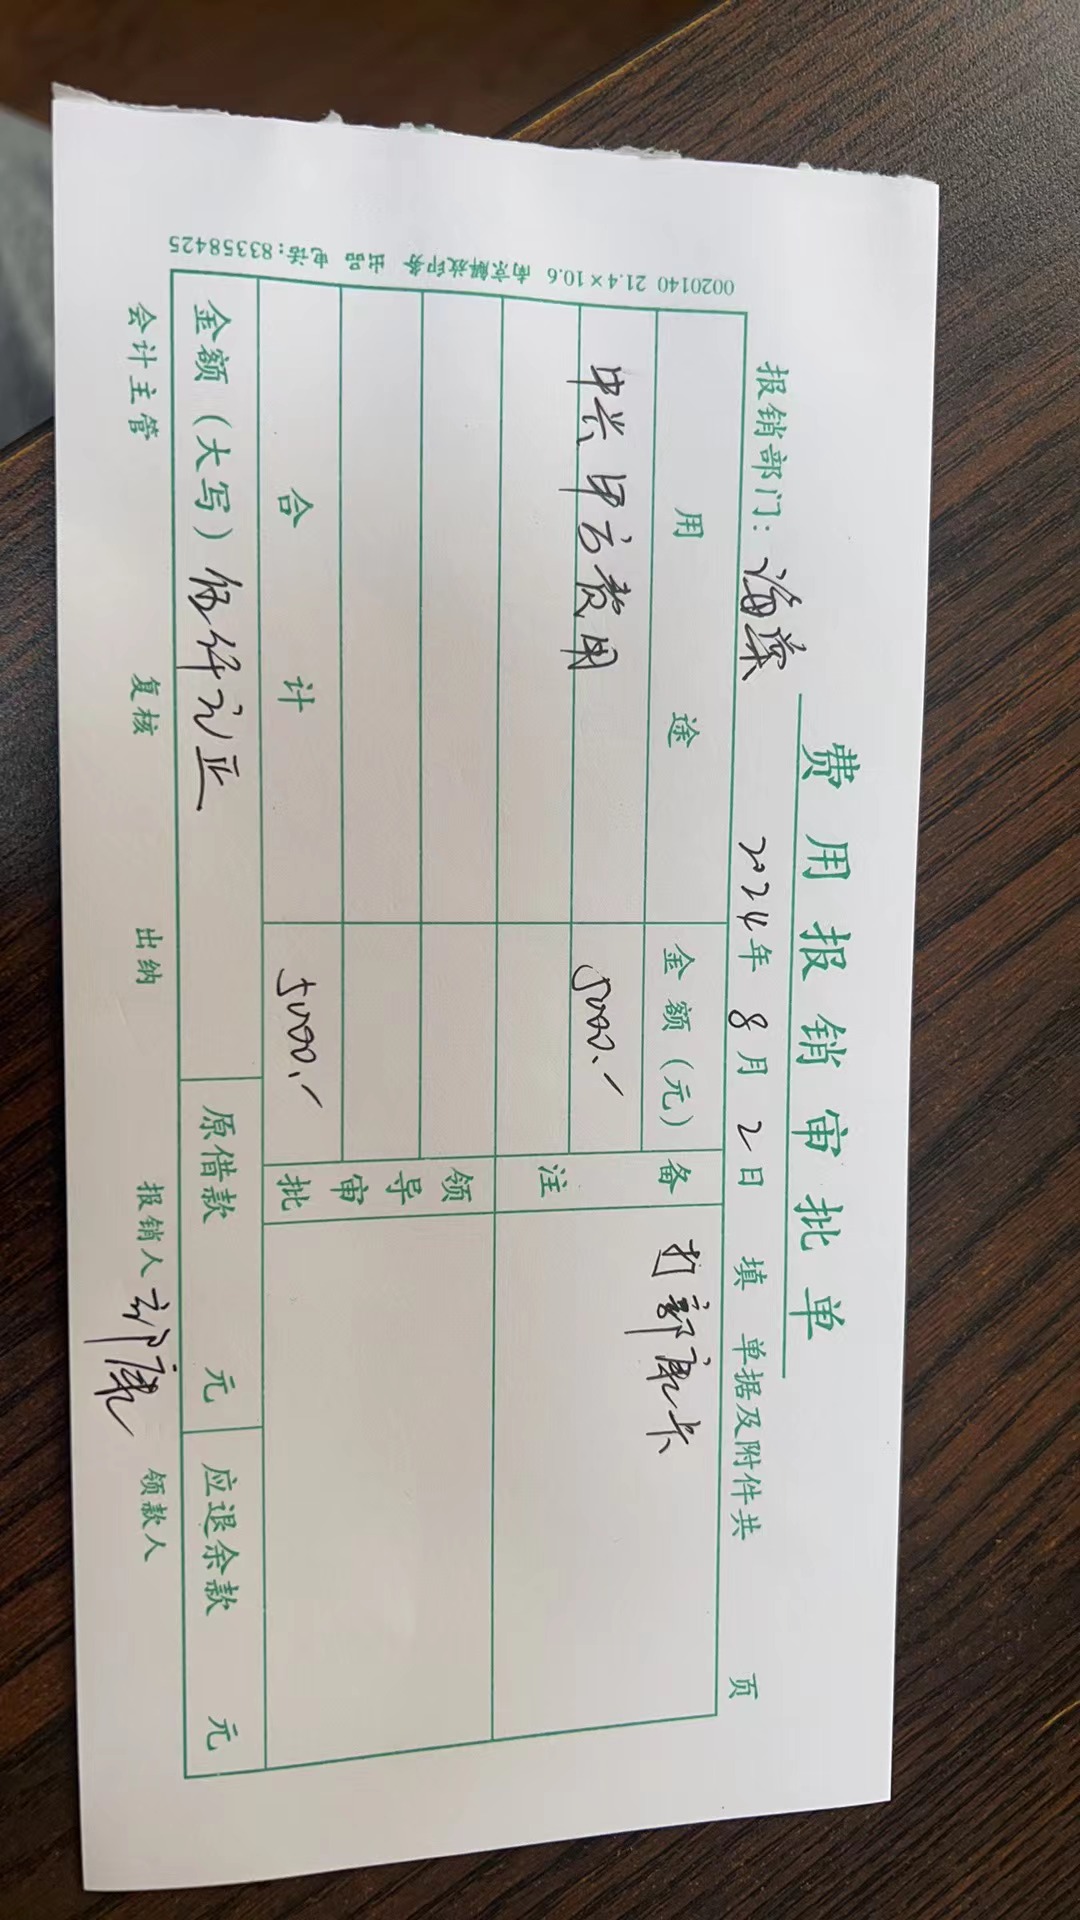 费用报销审批单
报销部门：海荣 2024年8月2日填 单据及附件共 页
用途 金额（元） 备注 打郭康卡
中兴甲方费用 5000.-
领导审批
合计 5000.-
金额（大写）伍仟元正 原借款 元 应退余款 元
会计主管 复核 出纳 报销人 郭康 领款人
0020140 21.4×10.6 南京解放印务 出品 电话:83358425